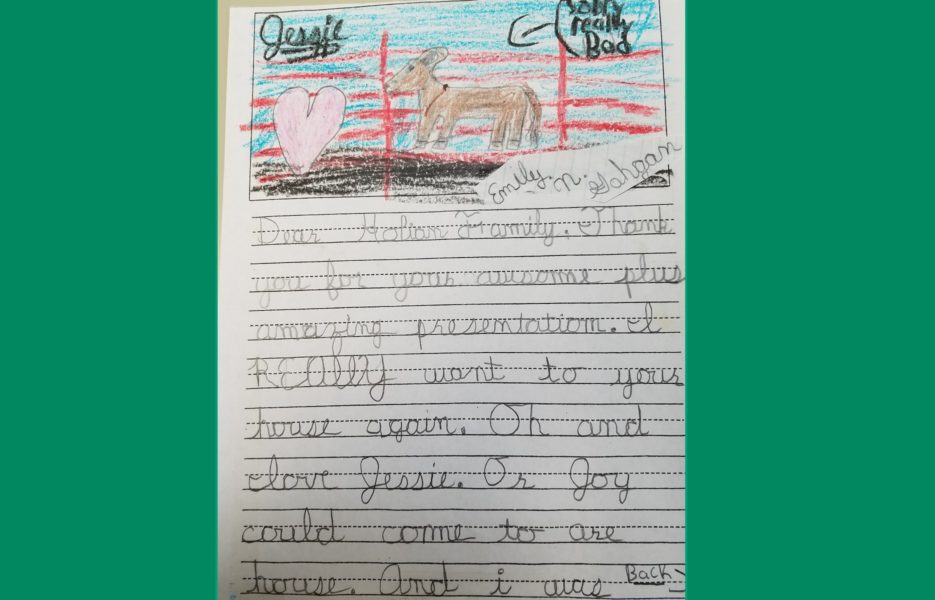 Jessie
Sorry
really
Bad
Emily. N.
Dear Family. Thank
you for your awsome plus
amazing presentation. I
REAllY want to your
house again. Oh and
I love Jessie. Or Joy
could come to are
house. And i was Back